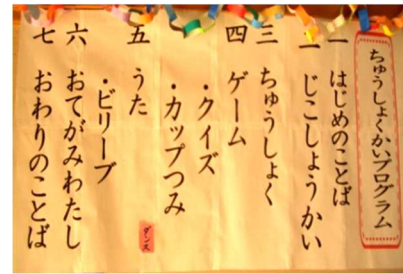 ちゅうしょくかいプログラム
一 はじめのことば
二 じこしょうかい
三 ちゅうしょく
四 ゲーム
・クイズ
・カップつみ
五 うた
ダンス
・ビリーブ
六 おてがみわたし
七 おわりのことば